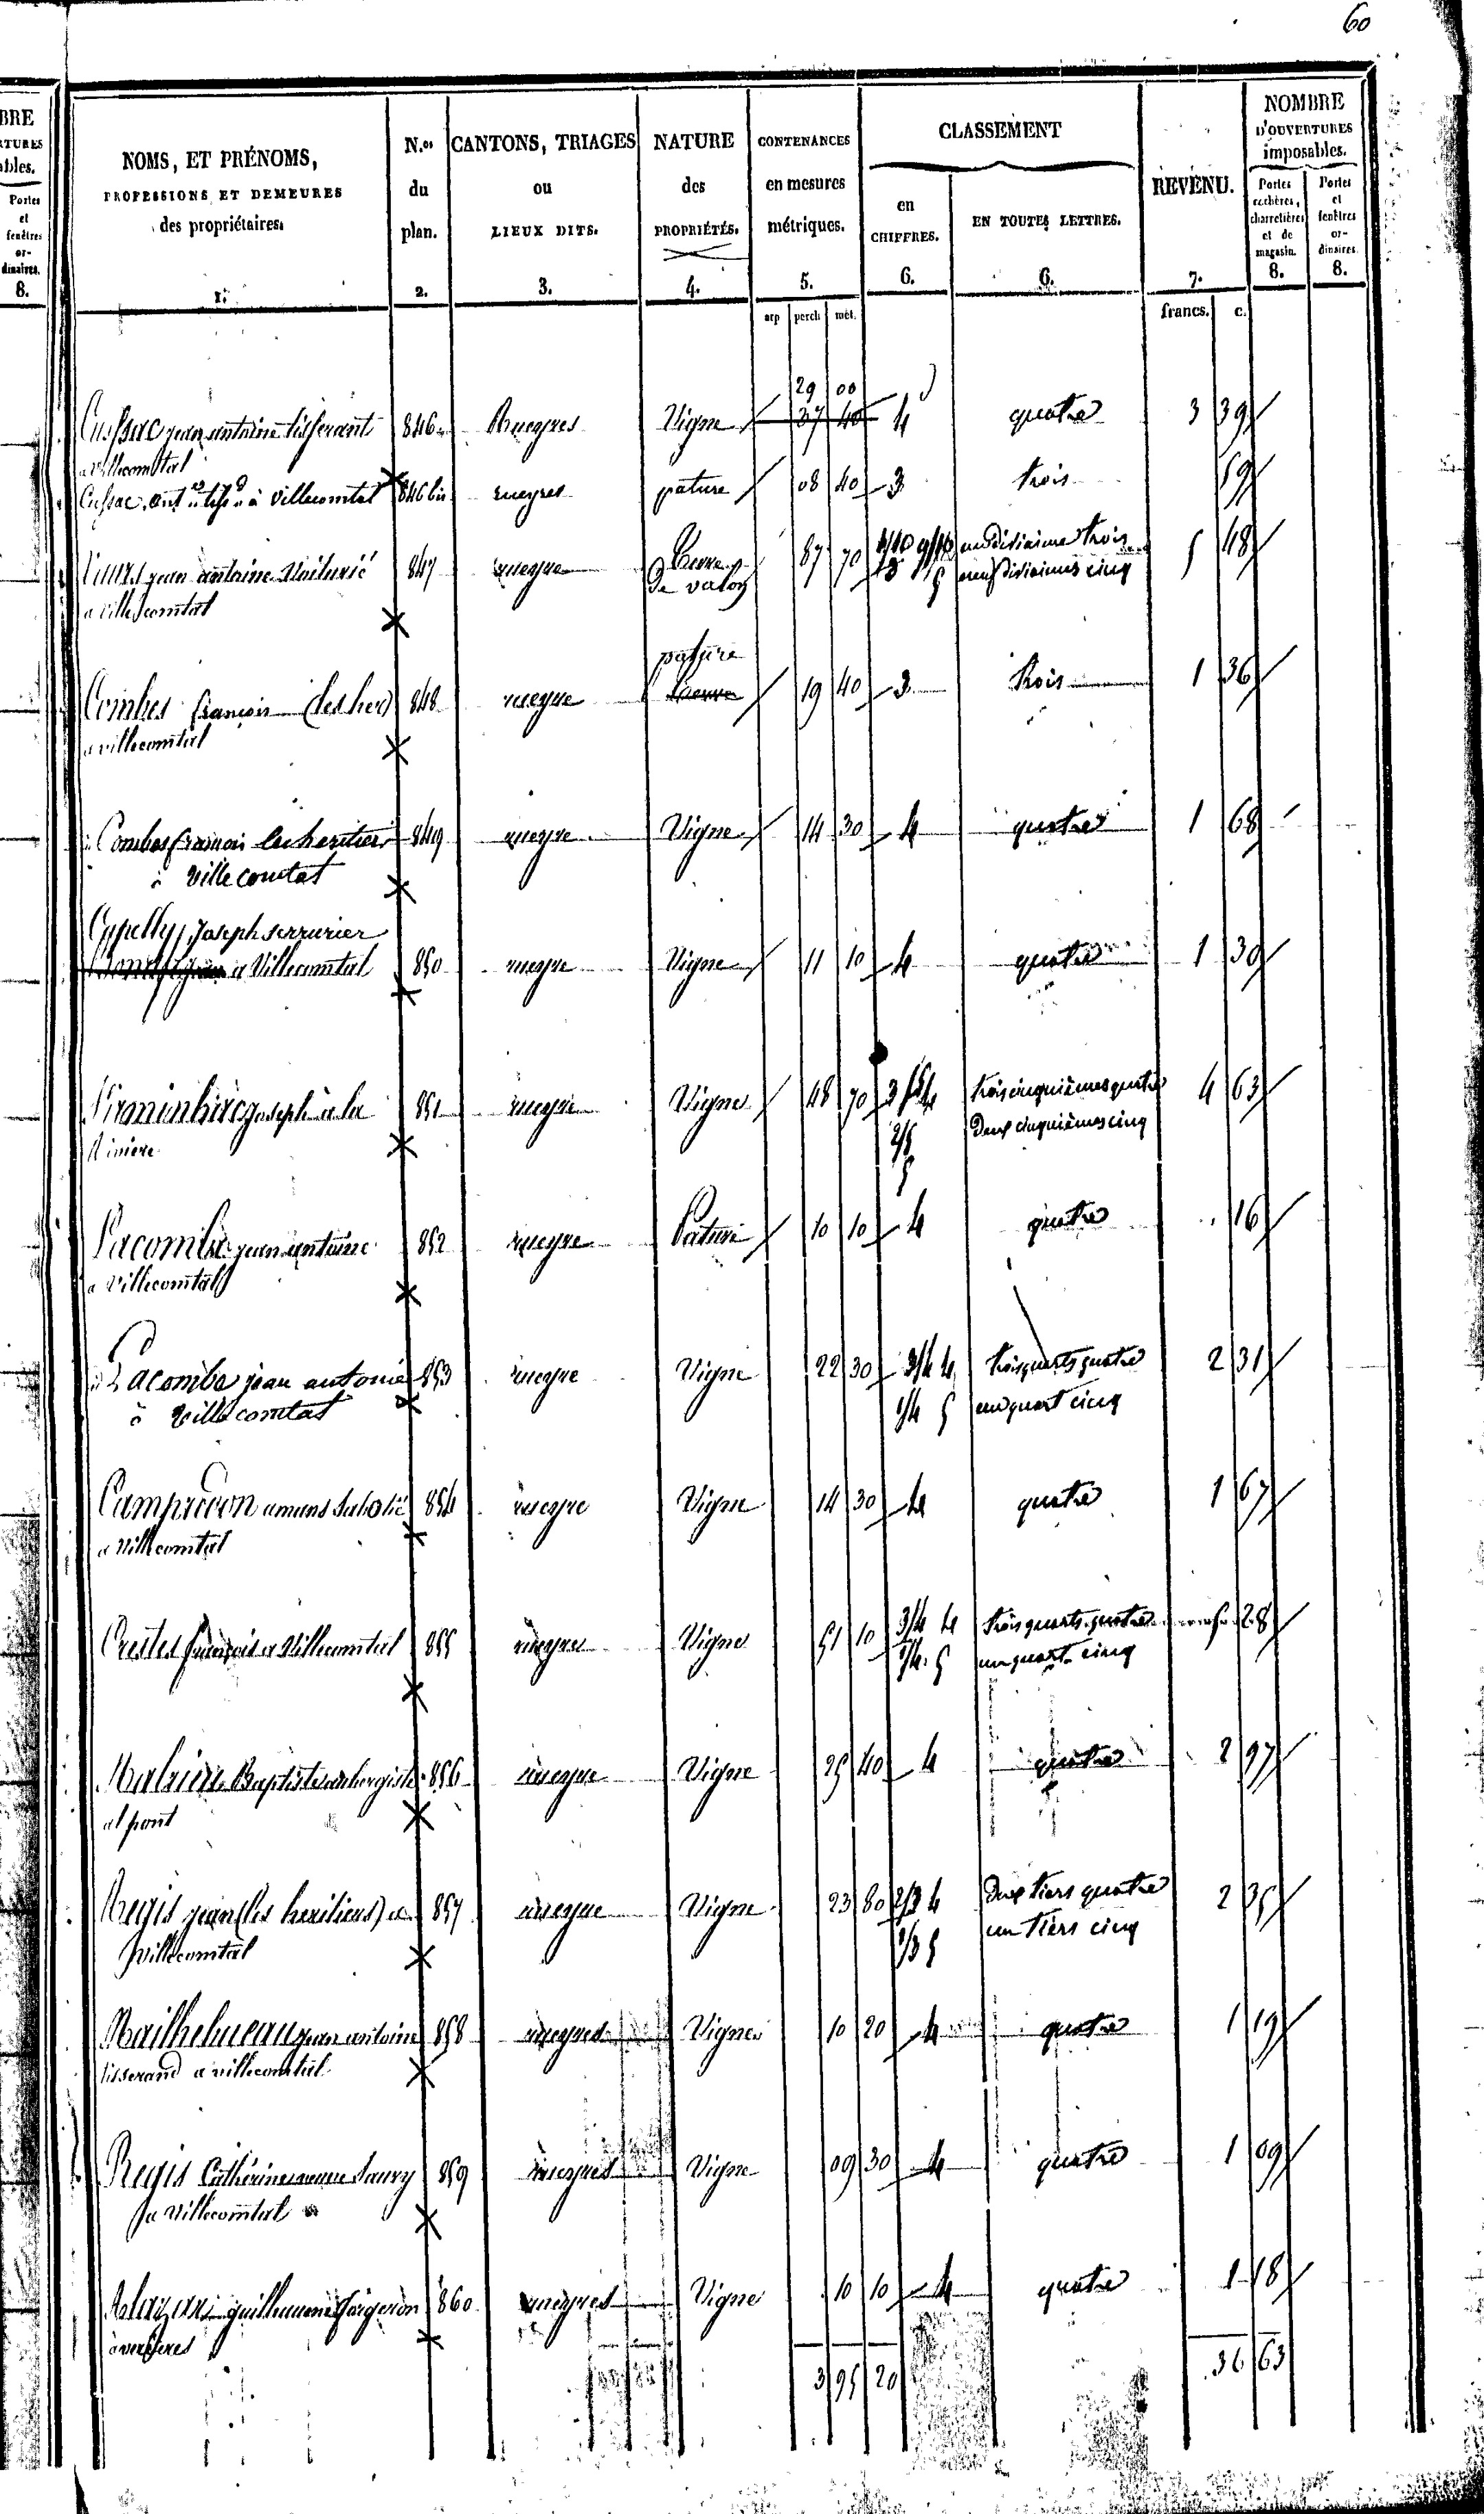 60
BRE
RTURES
ables.
Portes
et
fenêtres
or-
dinaires.
8.
NOMS, ET PRÉNOMS,
PROFESSIONS ET DEMEURES
des propriétaires.
1.
N.os
du
plan.
2.
CANTONS, TRIAGES
ou
LIEUX DITS.
3.
NATURE
des
PROPRIÉTÉS.
4.
CONTENANCES
en mesures
métriques.
5.
arp perch mèt.
CLASSEMENT
en
CHIFFRES.
6.
EN TOUTES LETTRES.
6.
REVENU.
7.
francs. c.
NOMBRE
D'OUVERTURES
imposables.
Portes
cochères,
charretières
et de
magasin.
8.
Portes
et
fenêtres
or-
dinaires.
8.
29 00
Cussac jean antoine tisserant 846 Rueyres Vigne 37 40 4 quatre 3 39
a Villecomtal
Cussac à villecomtal 846 bis rueyres pature 08 40 3 trois 59
jean antoine 847 rueyre de valoy 87 70 1/10 3 9/10 5 un dixieme trois neuf dixiemes cinq 5 48
a villecomtal
pature
Combes françois (les her) 848 rueyre 19 40 3 trois 1 36
a villecomtal
Combes françois les heritiers 849 rueyre Vigne 14 30 4 quatre 1 68
à villecomtal
Capelly, Joseph serrurier
a Villecomtal 850 rueyre Vigne 11 10 4 quatre 1 30
joseph à la 851 rueyre Vigne 48 70 3/5 4 trois cinquièmes quatre 4 63
Riviere 2/5 5 deux cinquièmes cinq
Lacombe jean antoine 852 rueyre Pature 10 10 4 quatre 16
a Villecomtal
Lacombe jean antoine 853 rueyre Vigne 22 30 3/4 4 trois quarts quatre 2 31
à Villecomtal 1/4 5 un quart cinq
amans 854 rueyre Vigne 14 30 4 quatre 1 67
a Villecomtal
françois a Villecomtal 855 rueyre Vigne 51 10 3/4 4 trois quarts quatre 5 28
1/4 5 un quart cinq
Baptiste aubergiste 856 rueyre Vigne 25 40 4 quatre 2 97
al pont
Regis jean (les heritiers) a 857 rueyre Vigne 23 80 2/3 4 deux tiers quatre 2 35
villecomtal 1/3 5 un tiers cinq
Mailhebueau jean antoine 858 rueyres Vigne 10 20 4 quatre 1 19
tisserand a villecomtal
Regis Catherine 859 rueyres Vigne 09 30 4 quatre 1 09
a Villecomtal
guillaume forgeron 860 rueyres Vigne 10 10 4 quatre 1 18
3 95 20 36 63